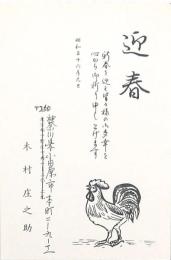 迎春
新春を迎え皆々様の御多幸を
心からお祈り申し上げます
昭和五十六年元旦
〒250
神奈川県小田原市本町二ー九ー
木村庄之助